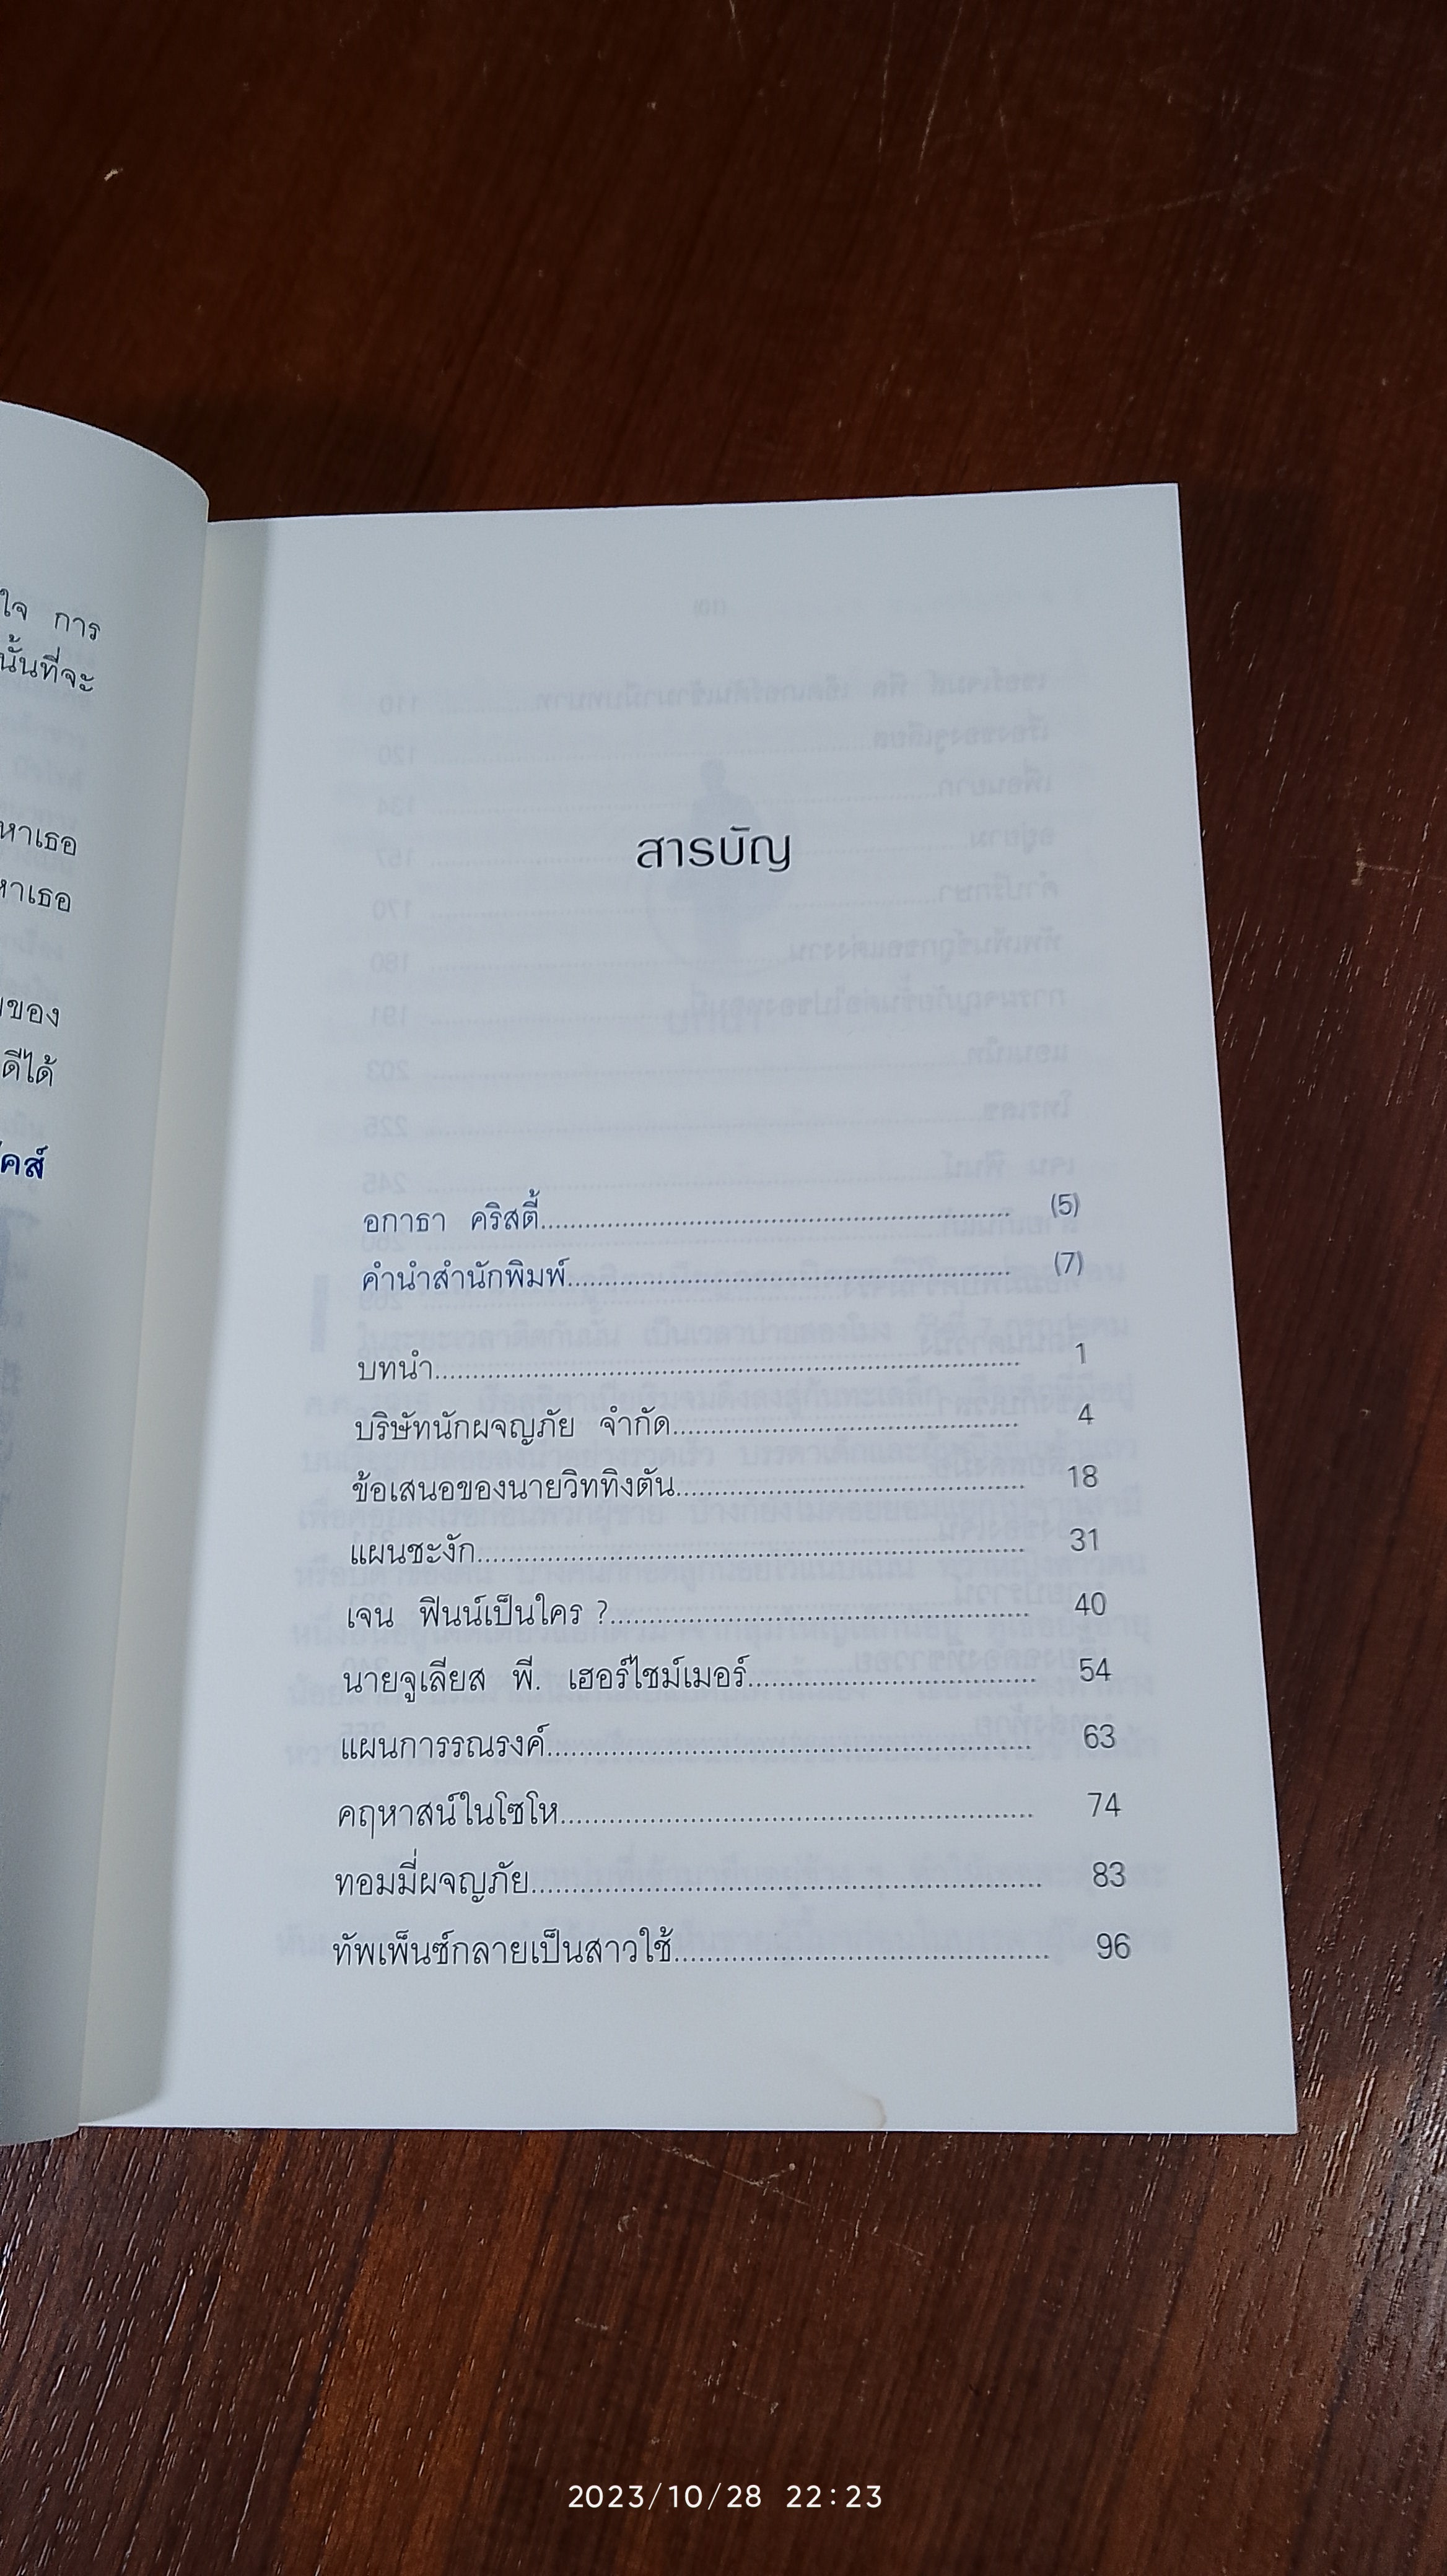 ใจ การ
นั้นที่จะ
หาเธอ
หาเธอ
ของ
ดีได้
คส์
สารบัญ
อกาธา คริสตี้ (5)
คำนำสำนักพิมพ์ (7)
บทนำ 1
บริษัทนักผจญภัย จำกัด 4
ข้อเสนอของนายวิททิงตัน 18
แผนชะงัก 31
เจน ฟินน์เป็นใคร ? 40
นายจูเลียส พี. เฮอร์ไชม์เมอร์ 54
แผนการรณรงค์ 63
คฤหาสน์ในโซโห 74
ทอมมี่ผจญภัย 83
ทัพเพ็นซ์กลายเป็นสาวใช้ 96
2023/10/28 22:23